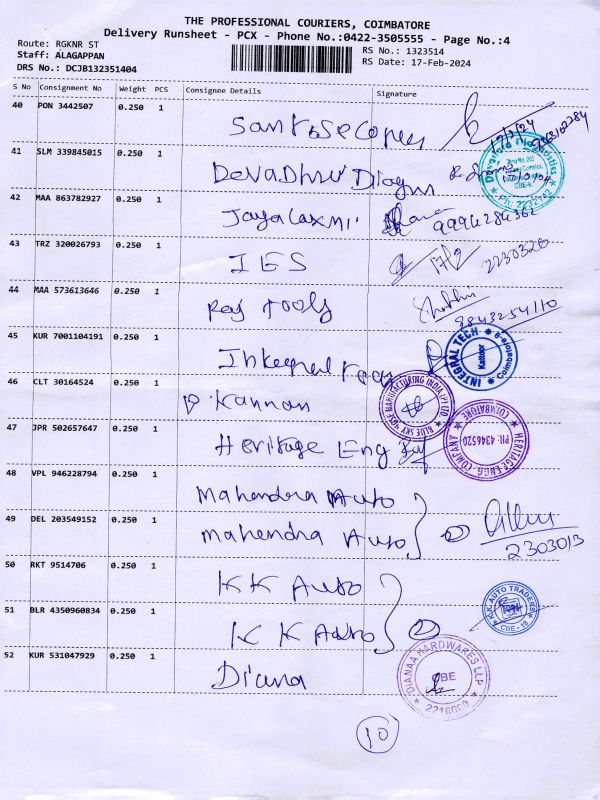 THE PROFESSIONAL COURIERS, COIMBATORE
Delivery Runsheet - PCX - Phone No.:0422-3505555 - Page No.:4
Route: RGKNR ST
Staff: ALAGAPPAN
DRS No.: DCJB132351404
RS No.: 1323514
RS Date: 17-Feb-2024
S No Consignment No Weight PCS Consignee Details Signature
40 PON 3442507 0.250 1
17/2/24
41 SLM 339845015 0.250 1
Devadhru Diagnostics
Ph: 2232742
42 MAA 863782927 0.250 1 Jayalaxmi 9994284362
43 TRZ 320026793 0.250 1 IES 17/2 2230326
44 MAA 573613646 0.250 1 Raj Tools
9843254110
45 KUR 7001104191 0.250 1
INTEGRAL TECH
Kattoor
Coimbatore-9
46 CLT 30164524 0.250 1 P. Kannan
MANUFACTURING INDIA (P) LTD
BLUE SKY
47 JPR 502657647 0.250 1 Heritage Eng
HERITAGE ENGG. COMPANY
PH: 4346520
COIMBATORE
48 VPL 946228794 0.250 1 Mahendra Auto
49 DEL 203549152 0.250 1 Mahendra Auto
2303013
50 RKT 9514706 0.250 1 KK Auto
51 BLR 4350960834 0.250 1 KK Auto
K.K. AUTO TRADERS
CBE-18
52 KUR 531047929 0.250 1 Diana
DIANAA HARDWARES LLP
CBE
2216000
10